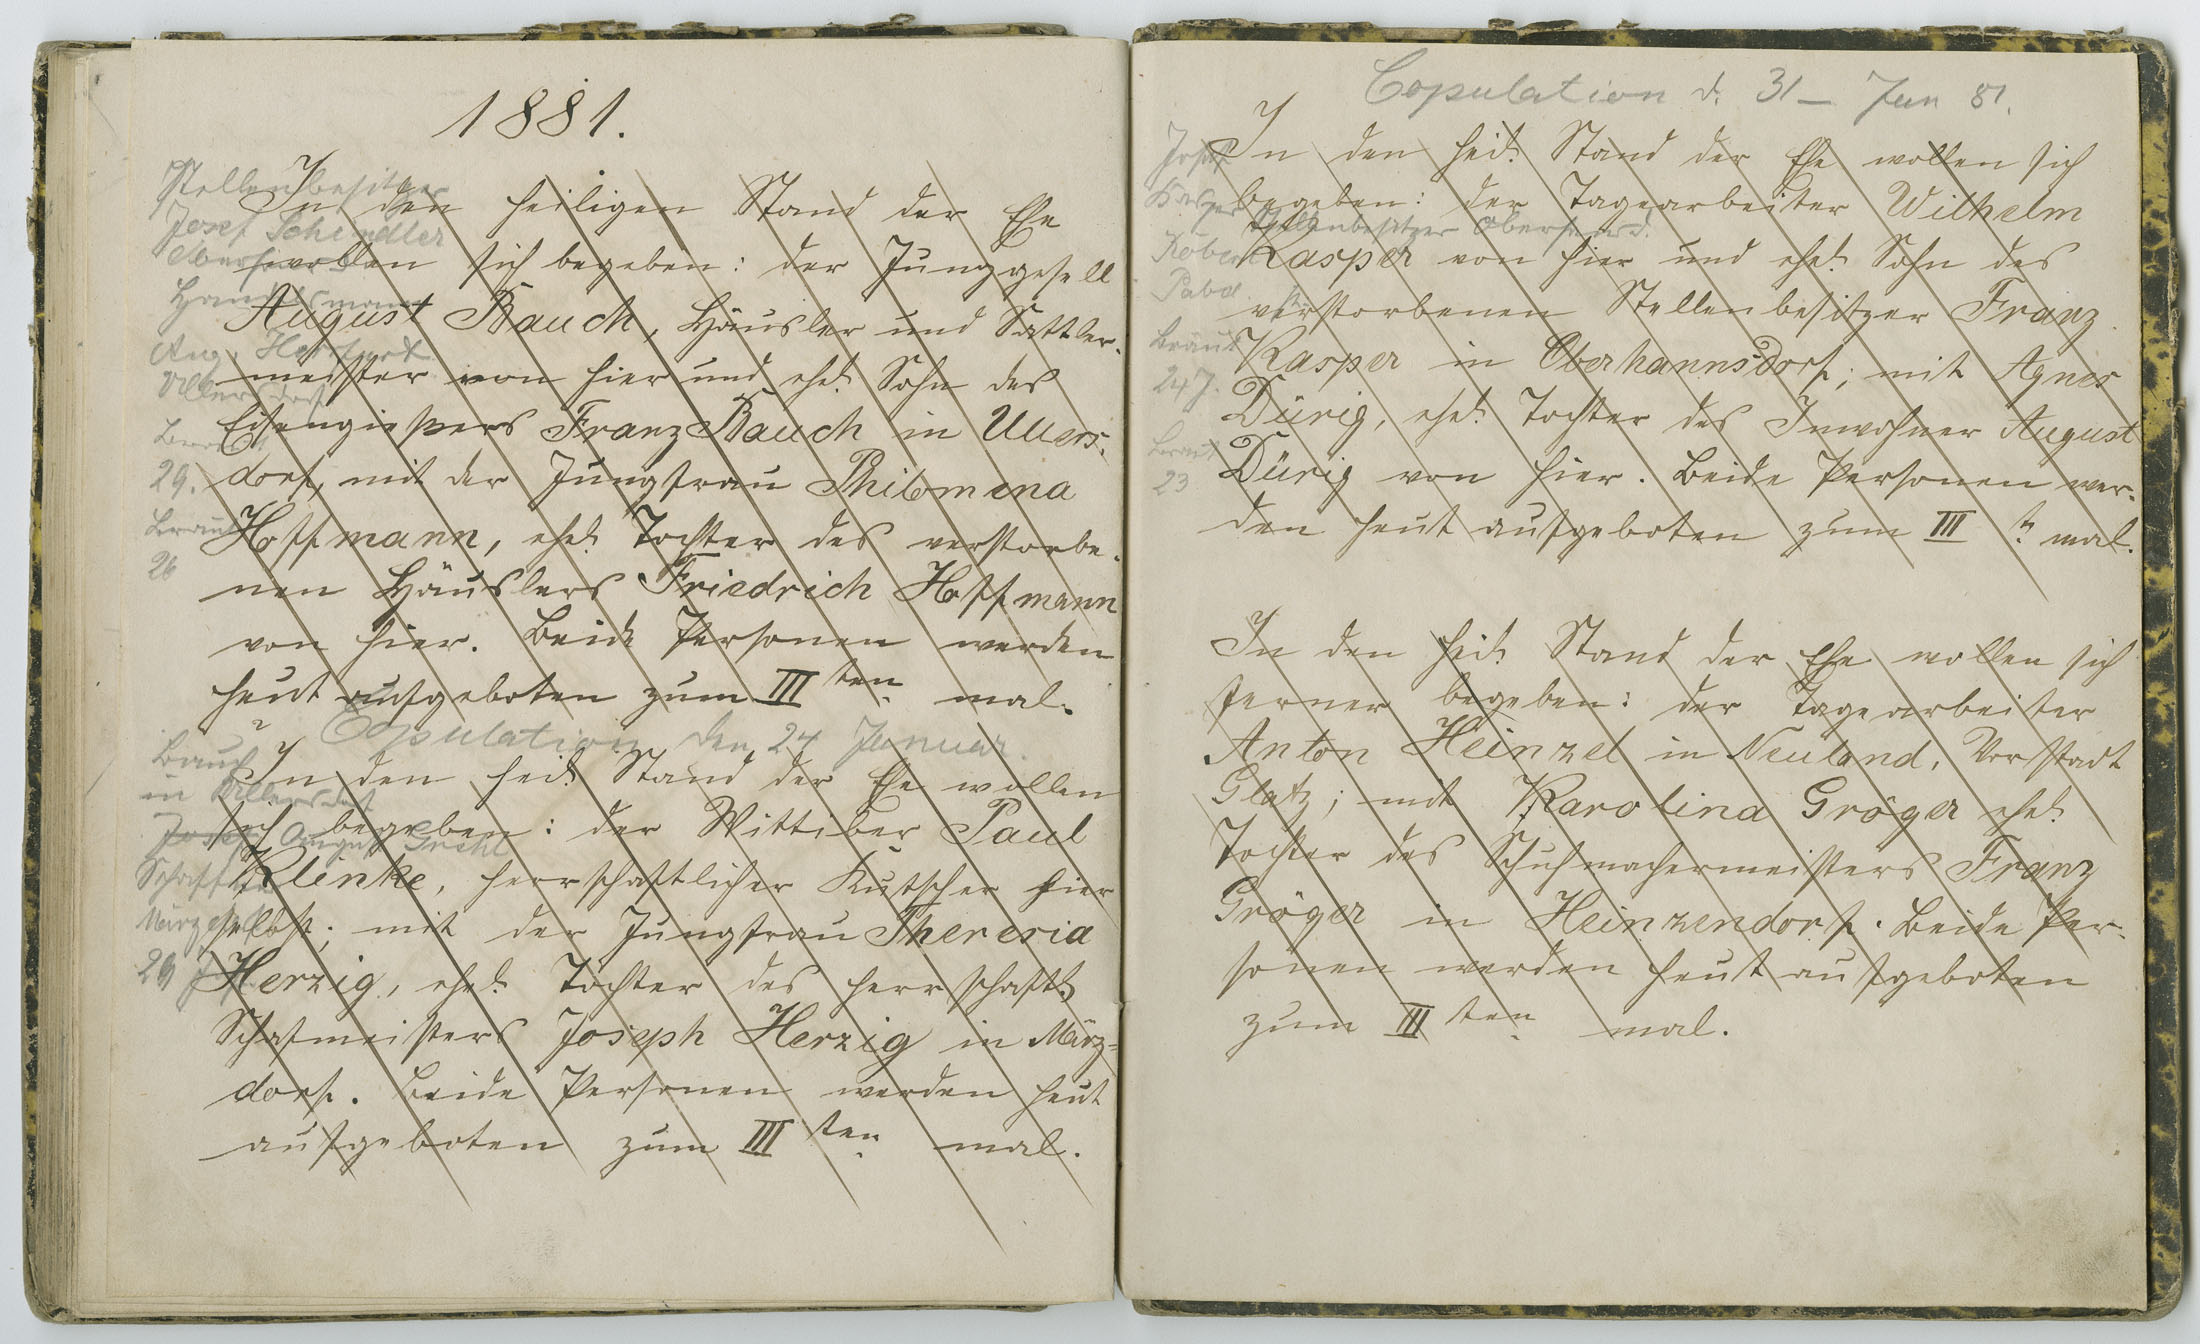 1881.
Stellenbesitzer
Josef Schindler
In den heiligen Stand der Ehe
wollen sich begeben: der Junggesell
August Bauch, Häusler und Sattler-
meister von hier und ehel. Sohn des
Eisengießers Franz Bauch in Ullers-
dorf, mit der Jungfrau Philomena
29.
Hoffmann, ehel. Tochter des verstorbe-
Braut
26
nen Häuslers Friedrich Hoffmann
von hier. Beide Personen werden
heut aufgeboten zum III ten mal.
Copulation den 24 Januar.
In den heil. Stand der Ehe wollen
in Ullersdorf
sich begeben: der Wittiber Paul
August
Klinke, herrschaftlicher Kutscher hier
selbst; mit der Jungfrau Theresia
29 J
Herzig, ehel. Tochter des herrschaftl.
Schafmeisters Joseph Herzig in März-
dorf. Beide Personen werden heut
aufgeboten zum III ten mal.
Copulation d. 31 – Jan 81.
Josef
In den heil. Stand der Ehe wollen sich
begeben: der Tagearbeiter Wilhelm
Stellenbesitzer
Kasper von hier und ehel. Sohn des
verstorbenen Stellenbesitzer Franz
Kasper in Oberhannsdorf; mit Agnes
24 J.
Dürig, ehel. Tochter des Inwohner August
Braut
23
Dürig von hier. Beide Personen wer-
den heut aufgeboten zum III t. mal.
In den heil. Stand der Ehe wollen sich
ferner begeben: der Tagearbeiter
Anton Heinzel in Neuland, Vorstadt
Glatz; mit Karolina Gröger ehel.
Tochter des Schuhmachermeisters Franz
Gröger in Heinzendorf. Beide Per-
sonen werden heut aufgeboten
zum III ten mal.